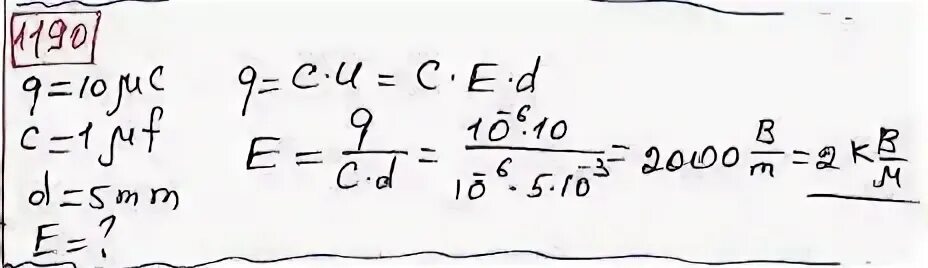 1190
q=10μC
C=1μf
d=5mm
E=?
q=C·U=C·E·d
E = q/(C·d) = (10⁻⁶·10)/(10⁻⁶·5·10⁻³) = 2000 В/m = 2 к В/м